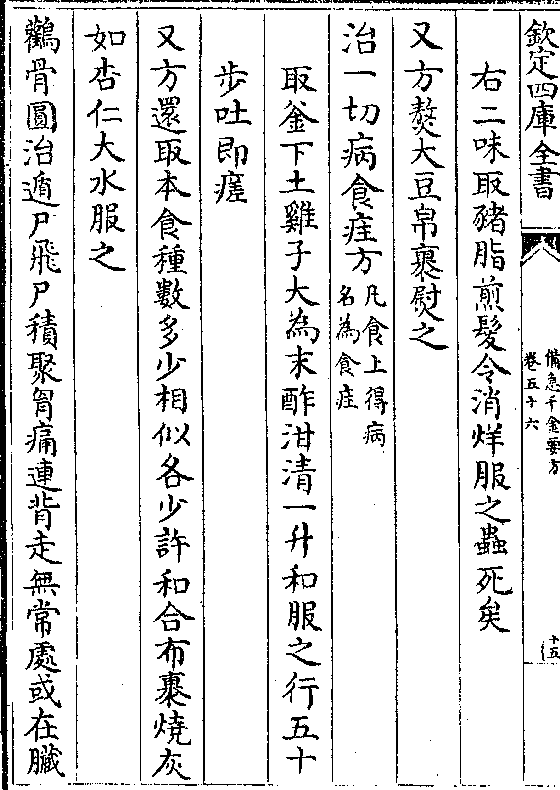 欽定四庫全書
備急千金要方
卷五十六
十五
右二味取豬脂煎髮令消烊服之蟲死矣
又方熬大豆帛裹熨之
治一切病食疰方凡食上得病名為食疰
取釜下土雞子大為末酢泔清一升和服之行五十
步吐即瘥
又方還取本食種數多少相似各少許和合布裹燒灰
如杏仁大水服之
鸛骨圓治遁尸飛尸積聚胷痛連背走無常處或在臟